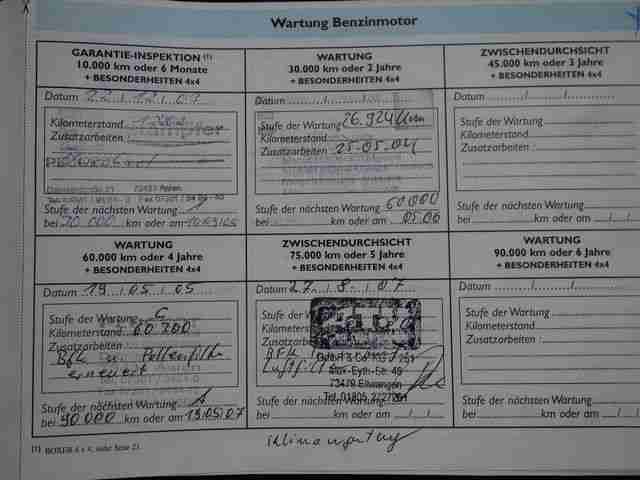 Wartung Benzinmotor
GARANTIE-INSPEKTION (1)
10.000 km oder 6 Monate
+ BESONDERHEITEN 4x4
Datum 22 / 12 / 01
Kilometerstand
Zusatzarbeiten
73431 Aalen
Stufe der nächsten Wartung
bei km oder am
WARTUNG
30.000 km oder 2 Jahre
+ BESONDERHEITEN 4x4
Datum / /
Stufe der Wartung 26.924 km
Kilometerstand
Zusatzarbeiten 25.05.04
Stufe der nächsten Wartung 60000
bei km oder am 05.06
ZWISCHENDURCHSICHT
45.000 km oder 3 Jahre
+ BESONDERHEITEN 4x4
Datum / /
Stufe der Wartung
Kilometerstand
Zusatzarbeiten :
Stufe der nächsten Wartung
bei km oder am / /
WARTUNG
60.000 km oder 4 Jahre
+ BESONDERHEITEN 4x4
Datum 19 / 05 / 05
Stufe der Wartung C
Kilometerstand 60 200
Zusatzarbeiten :
Bfk Pollenfilter
erneuert
Stufe der nächsten Wartung A
bei 90 000 km oder am 19.05.07
ZWISCHENDURCHSICHT
75.000 km oder 5 Jahre
+ BESONDERHEITEN 4x4
Datum 27 / 8 / 07
Stufe der
Kilometers
Zusatzarbei
BFK
Luftfil
GmbH & Co KG
Max-Eyth-Str. 49
73479 Ellwangen
Stufe der nächsten Wartung
bei km oder am / /
WARTUNG
90.000 km oder 6 Jahre
+ BESONDERHEITEN 4x4
Datum / /
Stufe der Wartung
Kilometerstand
Zusatzarbeiten :
Stufe der nächsten Wartung
bei km oder am / /
Klimawartung
(1) BOXER 4 x 4, siehe Seite 21.